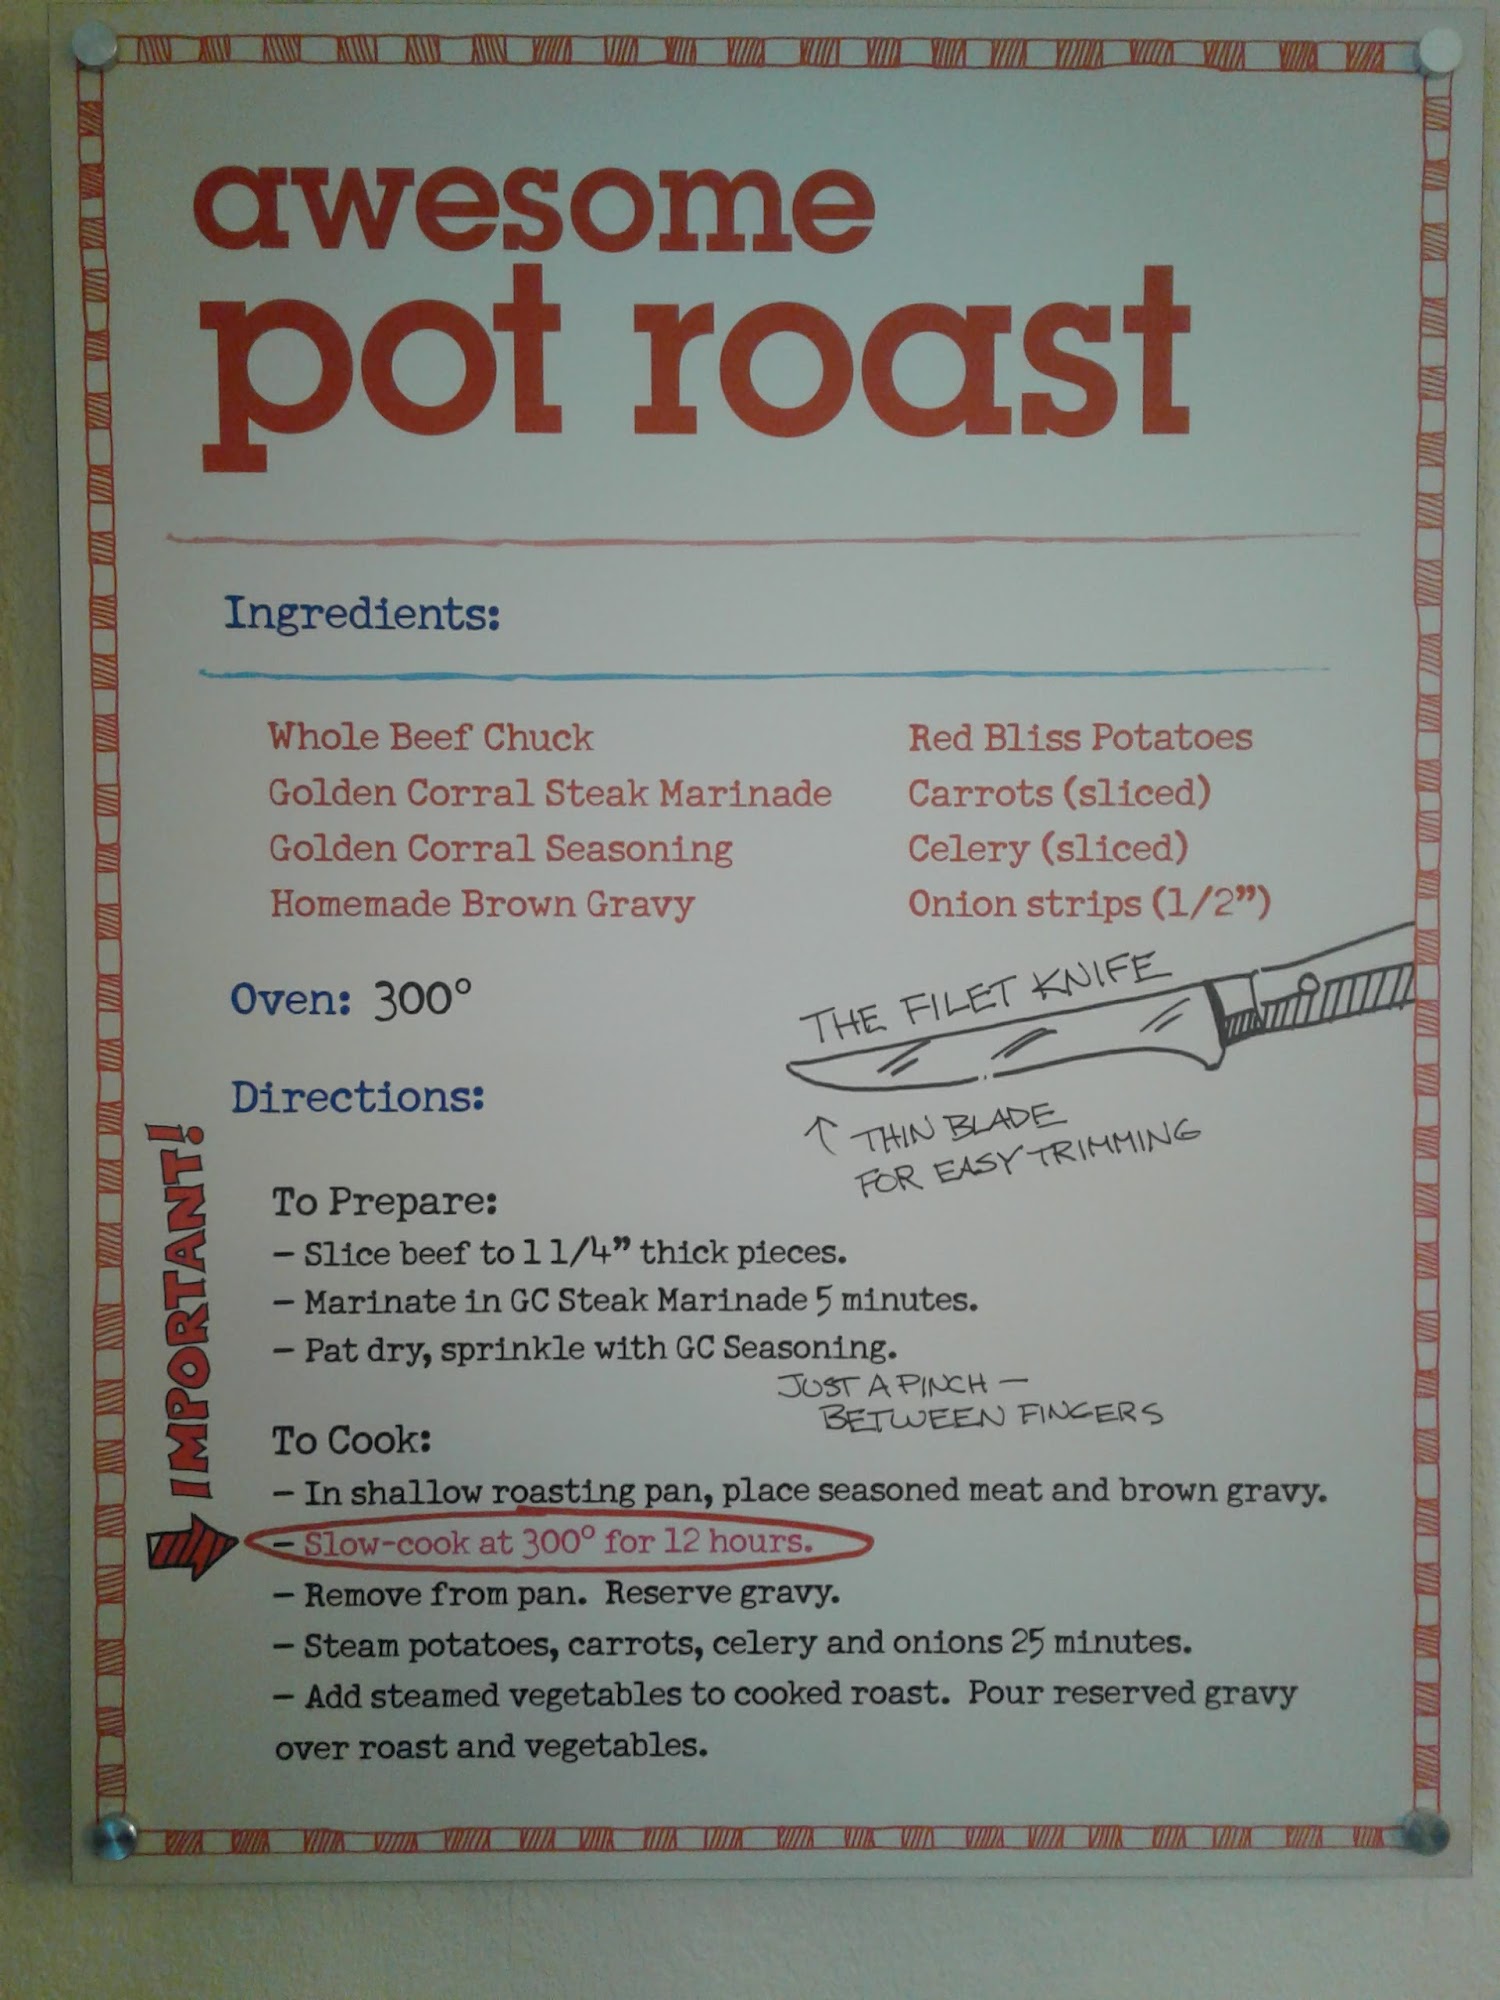 awesome
pot roast
Ingredients:
Whole Beef Chuck
Golden Corral Steak Marinade
Golden Corral Seasoning
Homemade Brown Gravy
Red Bliss Potatoes
Carrots (sliced)
Celery (sliced)
Onion strips (1/2”)
Oven: 300°
THE FILET KNIFE
↑ THIN BLADE
FOR EASY TRIMMING
Directions:
IMPORTANT!
To Prepare:
– Slice beef to 1 1/4” thick pieces.
– Marinate in GC Steak Marinade 5 minutes.
– Pat dry, sprinkle with GC Seasoning.
JUST A PINCH –
BETWEEN FINGERS
To Cook:
– In shallow roasting pan, place seasoned meat and brown gravy.
– Slow-cook at 300° for 12 hours.
– Remove from pan. Reserve gravy.
– Steam potatoes, carrots, celery and onions 25 minutes.
– Add steamed vegetables to cooked roast. Pour reserved gravy
over roast and vegetables.